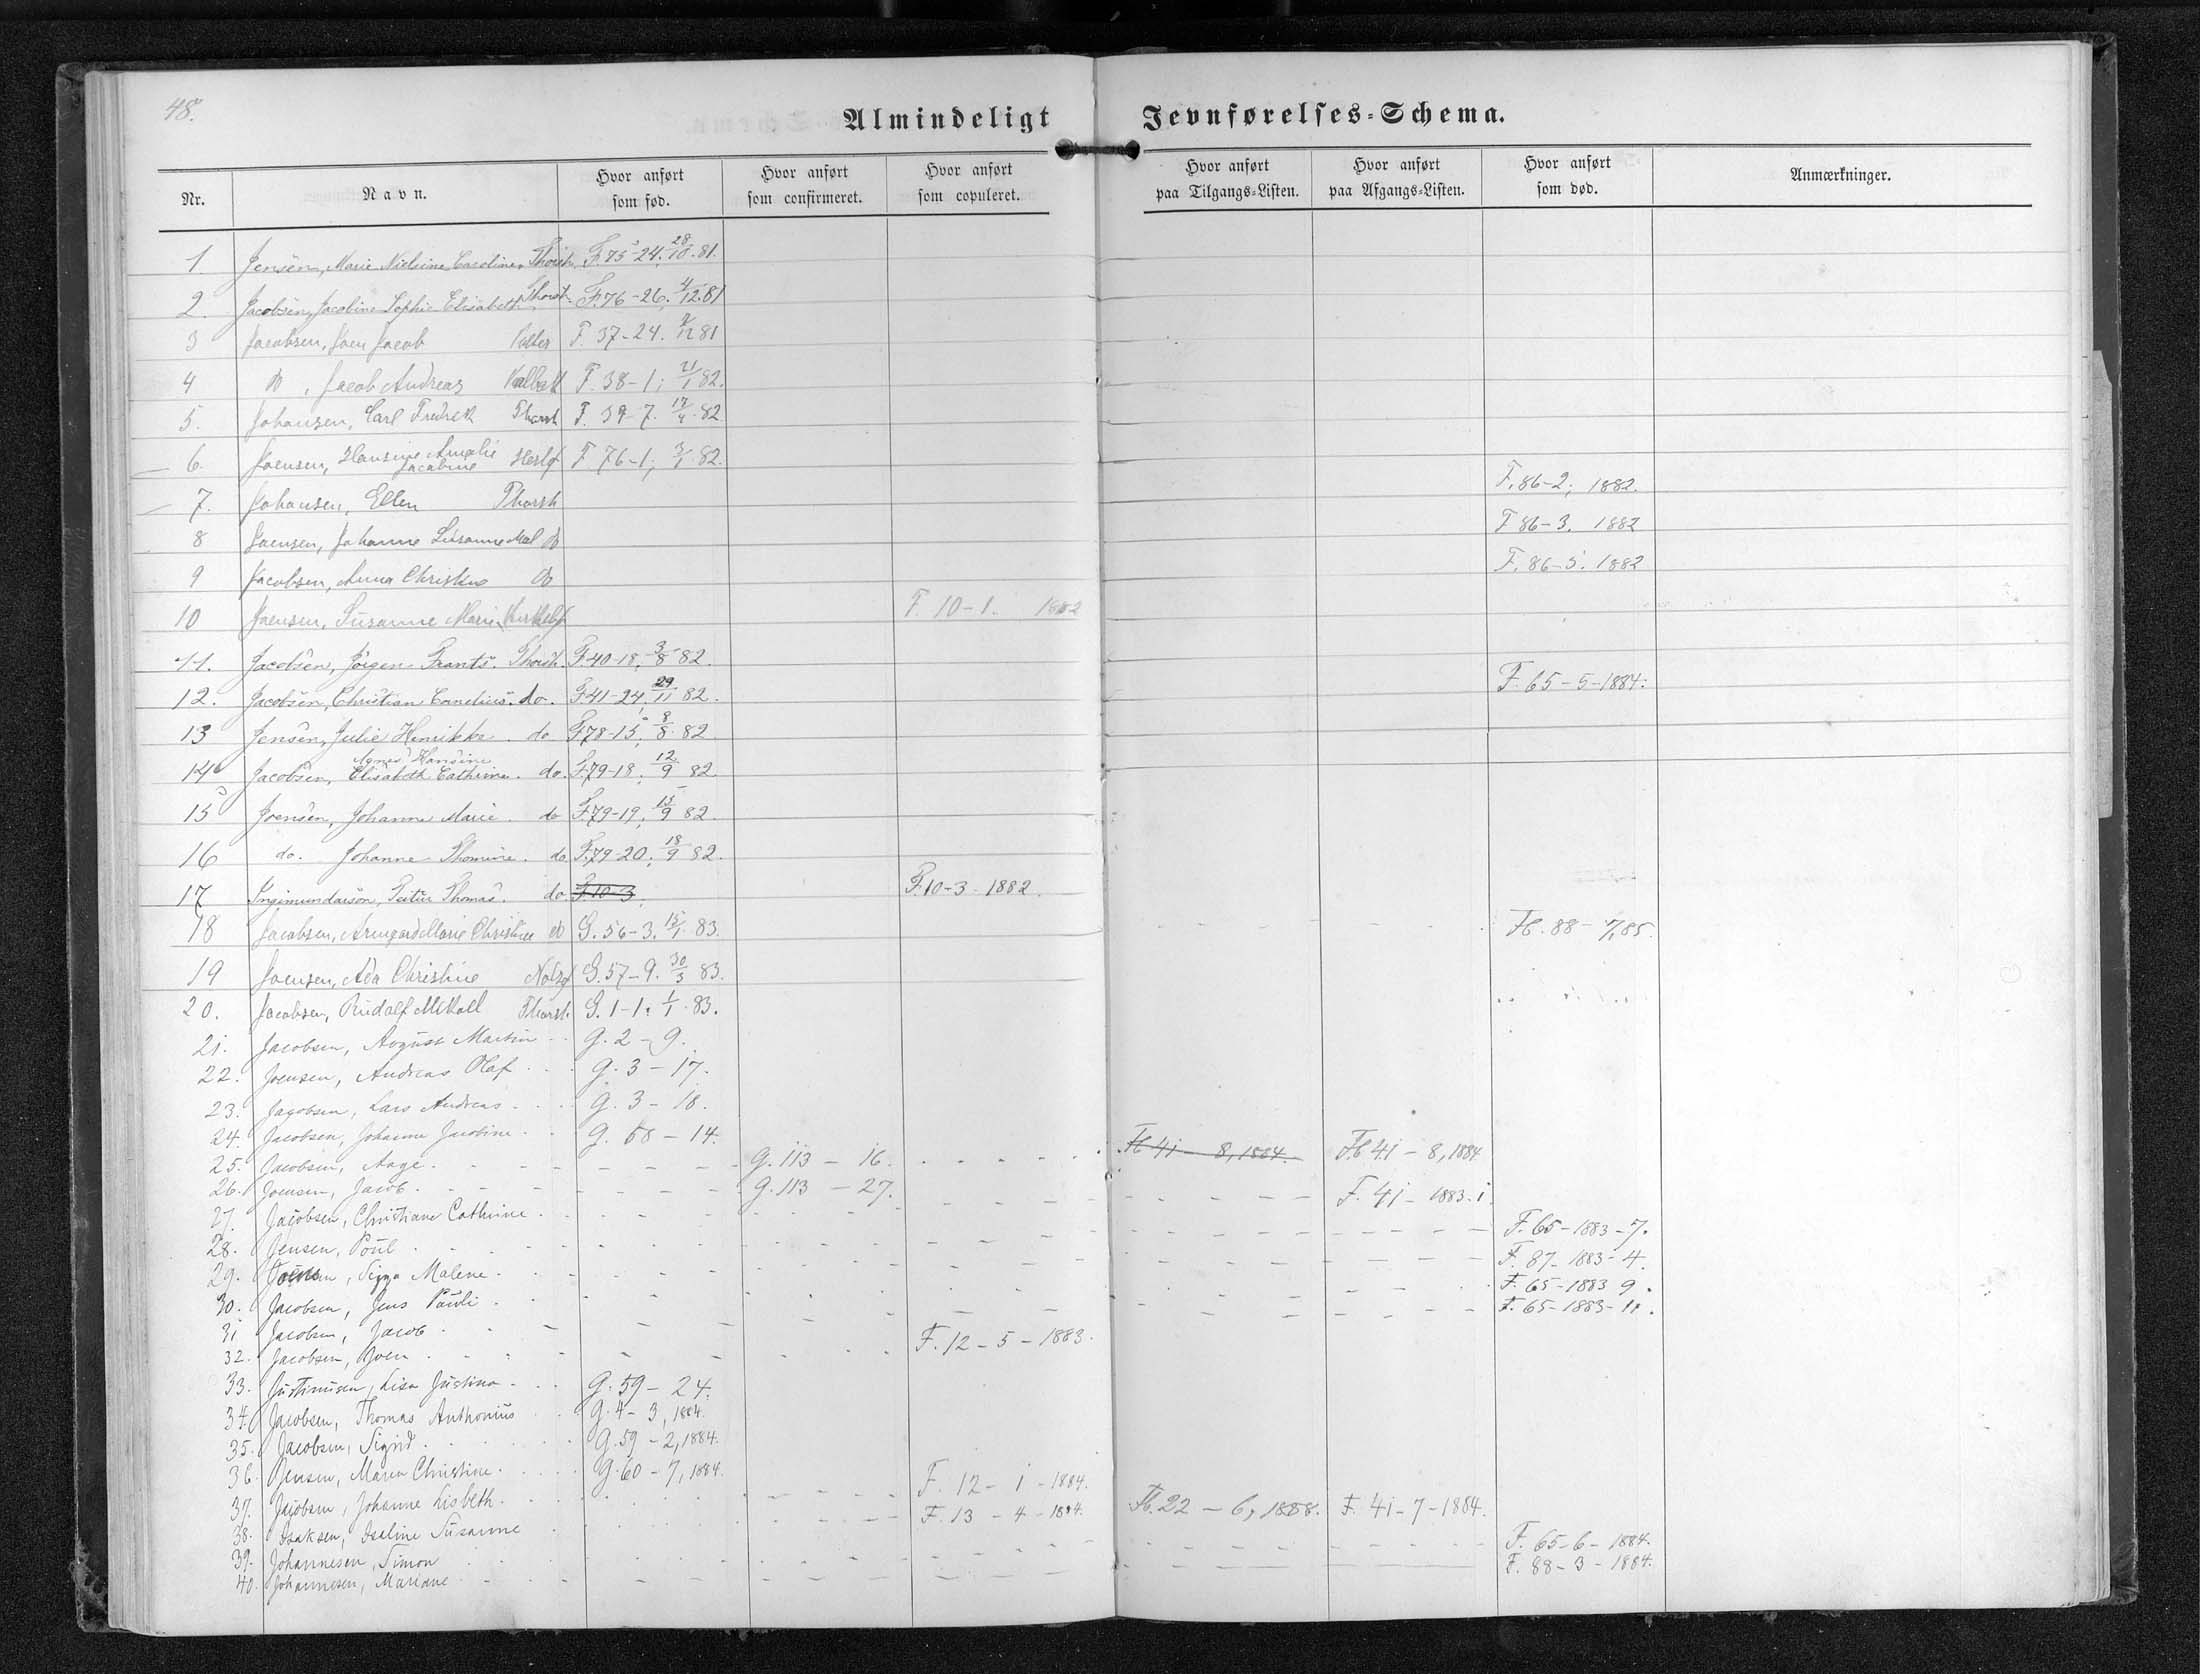 48.
Almindeligt Jevnførelses-Schema.
Nr. Navn. Hvor anført som fød. Hvor anført som confirmeret. Hvor anført som copuleret. Hvor anført paa Tilgangs-Listen. Hvor anført paa Afgangs-Listen. Hvor anført som død. Anmærkninger.
1 Jensen, Marie Nielsine Caroline, Thorsh. F. 75-24. 28/10.81.
2. Jacobsen, Jacobine Sophie Elisabeth, Thorsh. F. 76-26. 4/12.81
3 Jacobsen, Joen Jacob F. 37-24. 81
4 do, Jacob Andreas Kalbak F. 38-1; 21/1 82.
5. Johansen, Carl Fredrek Thorsh F. 39-7. 17/4.82
6. Joensen, Hansine Amalie Jacobine F 76-1; 3/1.82.
7. Johansen, Ellen Thorsh F. 86-2; 1882.
8 Joensen, Johanne Susanne Mal do F 86-3. 1882
9 Jacobsen, Anna Christine do F. 86-5. 1882
10 Joensen, Susanne Marie, Kirkebø F. 10-1. 1882
11. Jacobsen, Jörgen Frants. Thorsh. F. 40-18; 3/8 82.
12. Jacobsen, Christian Cornelius. do. F. 41-24; 29/11 82. F. 65-5-1884.
13 Jensen, Julie Henrikke. do F. 78-15; 8/8. 82
14 Jacobsen, Agnes Hansine Elisabeth Cathrine. do. F. 79-18; 12/9 82.
15 Joensen, Johanne Marie. do F. 79-19; 15/9 82.
16 do. Johanne Thomine. do. F. 79-20; 18/9 82.
17 Ingimundarson, Peitur Thomas. do. F. 10-3. F. 10-3. 1882.
18 Jacobsen, Armgard Marie Christine do G. 56-3. 15/1 83. H. 88 - 7, 85.
19 Joensen, Ada Christine Nolsø G. 57-9. 30/3 83.
20. Jacobsen, Rudolf Mikael Thorsh. G. 1-1. 1/1.83.
21. Jacobsen, August Martin G. 2-9.
22. Joensen, Andreas Olaf G. 3-17.
23. Jacobsen, Lars Andreas G. 3-18.
24. Jacobsen, Johanne Jacobine G. 58-14.
25. Jacobsen, Aage. G. 113 - 16. H 41 - 8, 1884. H 41 - 8, 1884
26. Joensen, Jacob. G. 113 - 27. F. 41 - 1883. 1
27. Jacobsen, Christiane Cathrine. F. 65-1883-7.
28. Jensen, Poul F. 87-1883-4.
29. Joensen, Sigga Malene. F. 65-1883 9.
30. Jacobsen, Jens Pauli F. 65-1883-11.
31 Jacobsen, Jacob F. 12-5-1883.
32. Jacobsen, Joen
33. Justinusen, Lisa Justina G. 59-24.
34. Jacobsen, Thomas Anthonius G. 4-3, 1884.
35. Jacobsen, Sigrid G. 59-2, 1884.
36. Jensen, Maren Christine. G. 60-7, 1884. F. 12-1-1884.
37. Jacobsen, Johanne Lisbeth. F. 13-4-1884. H. 22-6, 1888. F. 41-7-1884.
38. Isaksen, Iseline Susanne F. 65-6-1884.
39. Johannesen, Simon F. 88-3-1884.
40. Johannesen, Mariane